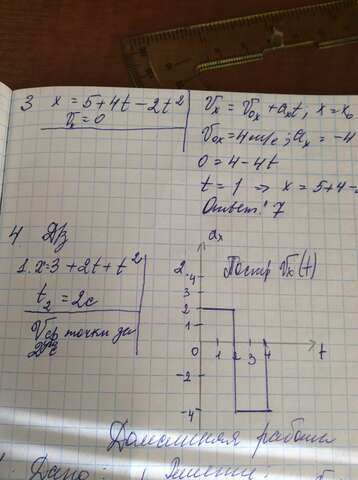 3 x = 5+4t-2t²
Vx = 0
Vx = V0x + axt, x = x0
V0x = 4 м/с; ax = -4
0 = 4-4t
t = 1 => x = 5+4-
Ответ: 7
4 Дз
1. x=3+2t+t²
t2 = 2с
Vср точки за
2
Постр Vx(t)
ax
4
3
2
1
0 1 2 3 4 t
-2
-4
Домашняя работа
Дано: Решение: